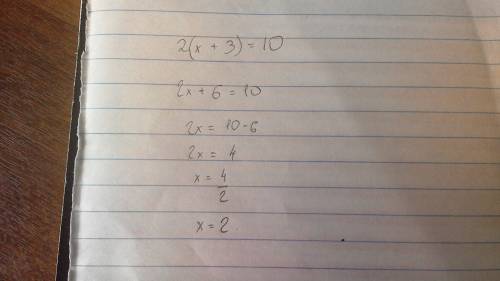 2(x + 3) = 10
2x + 6 = 10
2x = 10 - 6
2x = 4
x = 4/2
x = 2